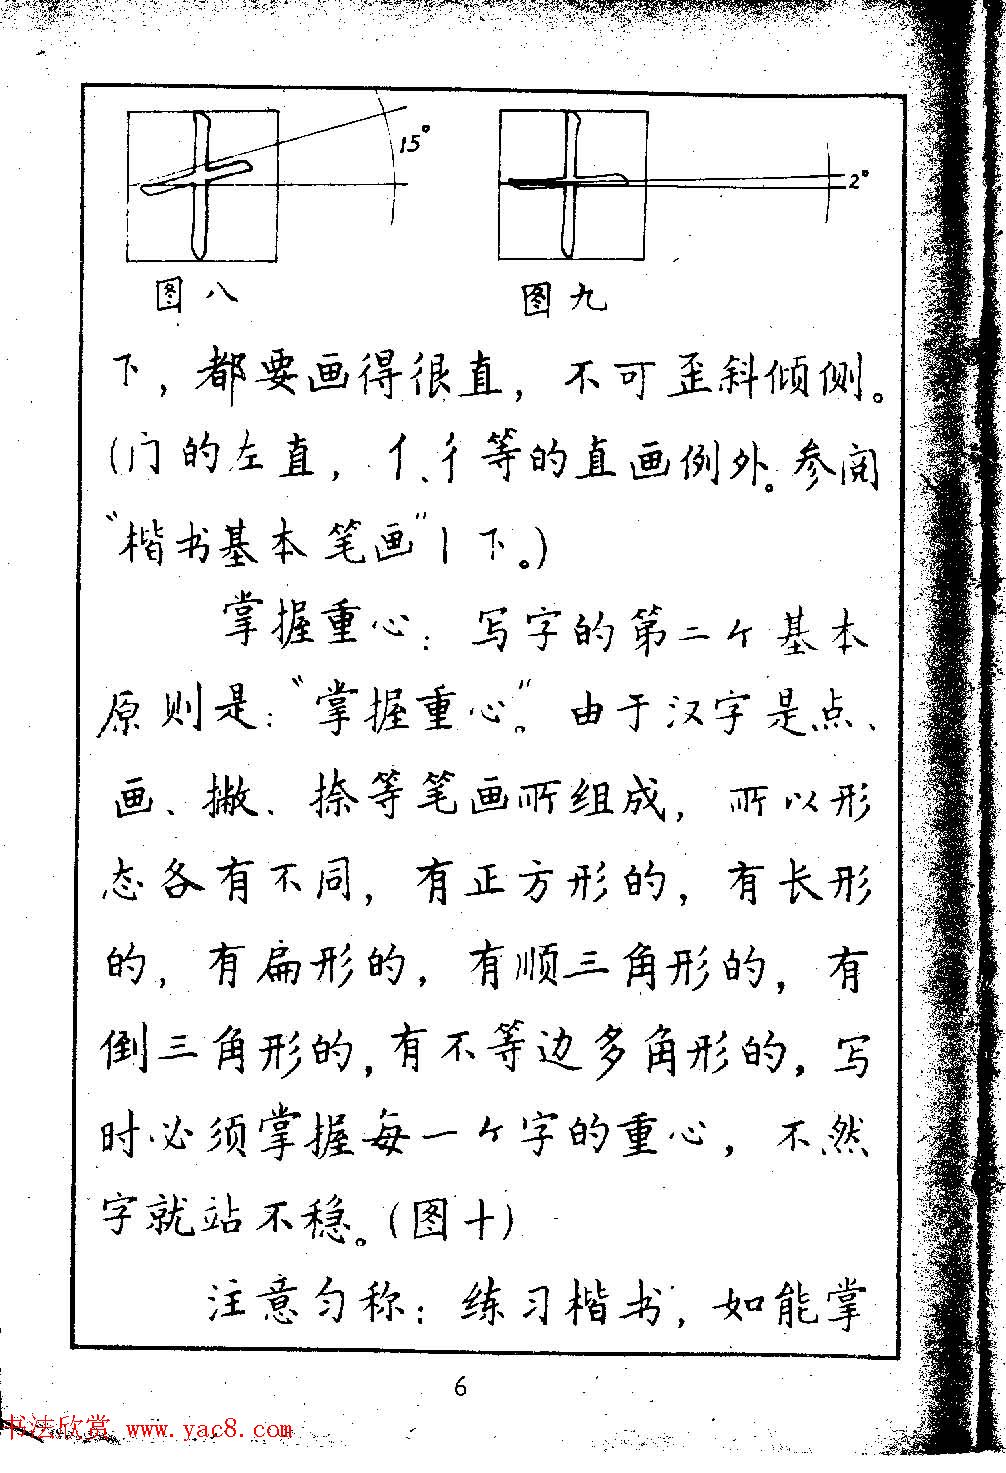 15°
2°
图八
图九
下，都要画得很直，不可歪斜倾侧。
(门的左直，亻、彳等的直画例外。参阅
“楷书基本笔画”丨下。)
掌握重心：写字的第二个基本
原则是：“掌握重心”。由于汉字是点、
画、撇、捺等笔画所组成，所以形
态各有不同，有正方形的，有长形
的，有扁形的，有顺三角形的，有
倒三角形的，有不等边多角形的，写
时必须掌握每一个字的重心，不然
字就站不稳。(图十)
注意匀称：练习楷书，如能掌
6
书法欣赏 www.yac8.com